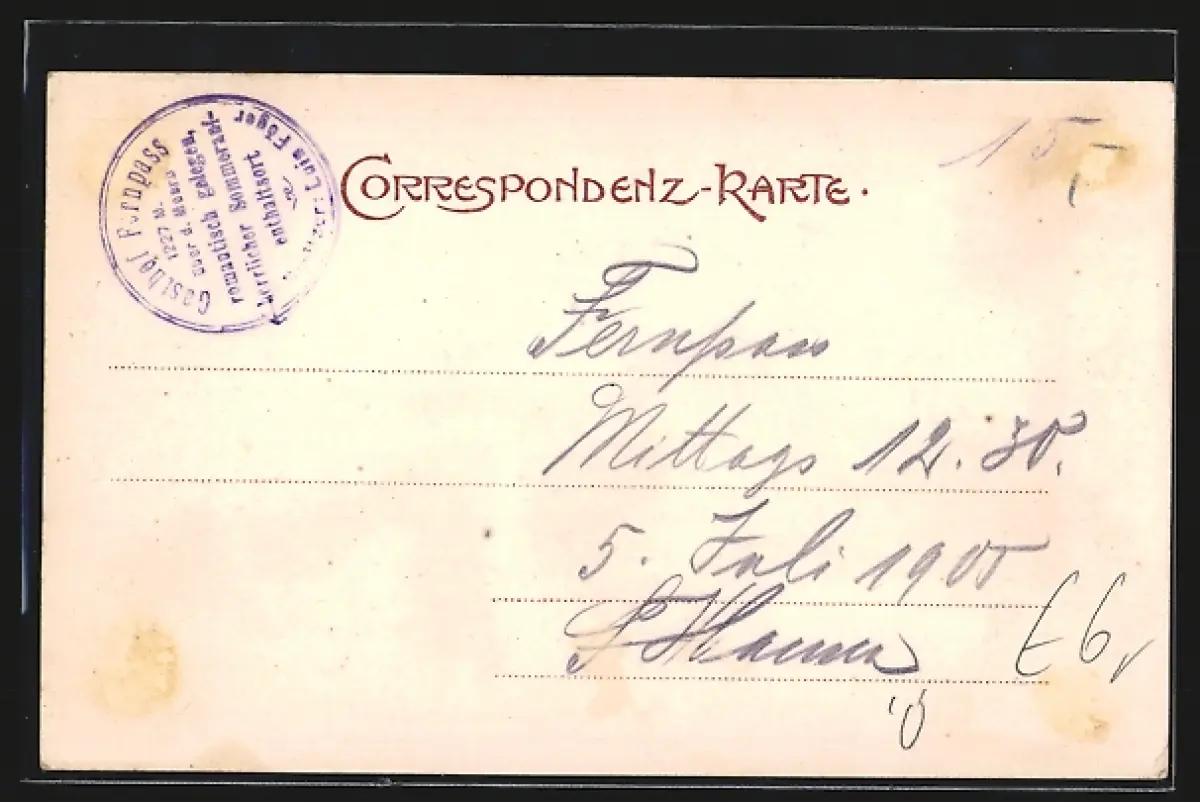 Gasthof Fernpass
1227 M.
über d. Meere
romantisch gelegen,
herrlicher Sommerauf-
enthaltsort
Luis Föger
CORRESPONDENZ-KARTE.
15-
Fernpass
Mittags 12.30.
5. Juli 1905
E6